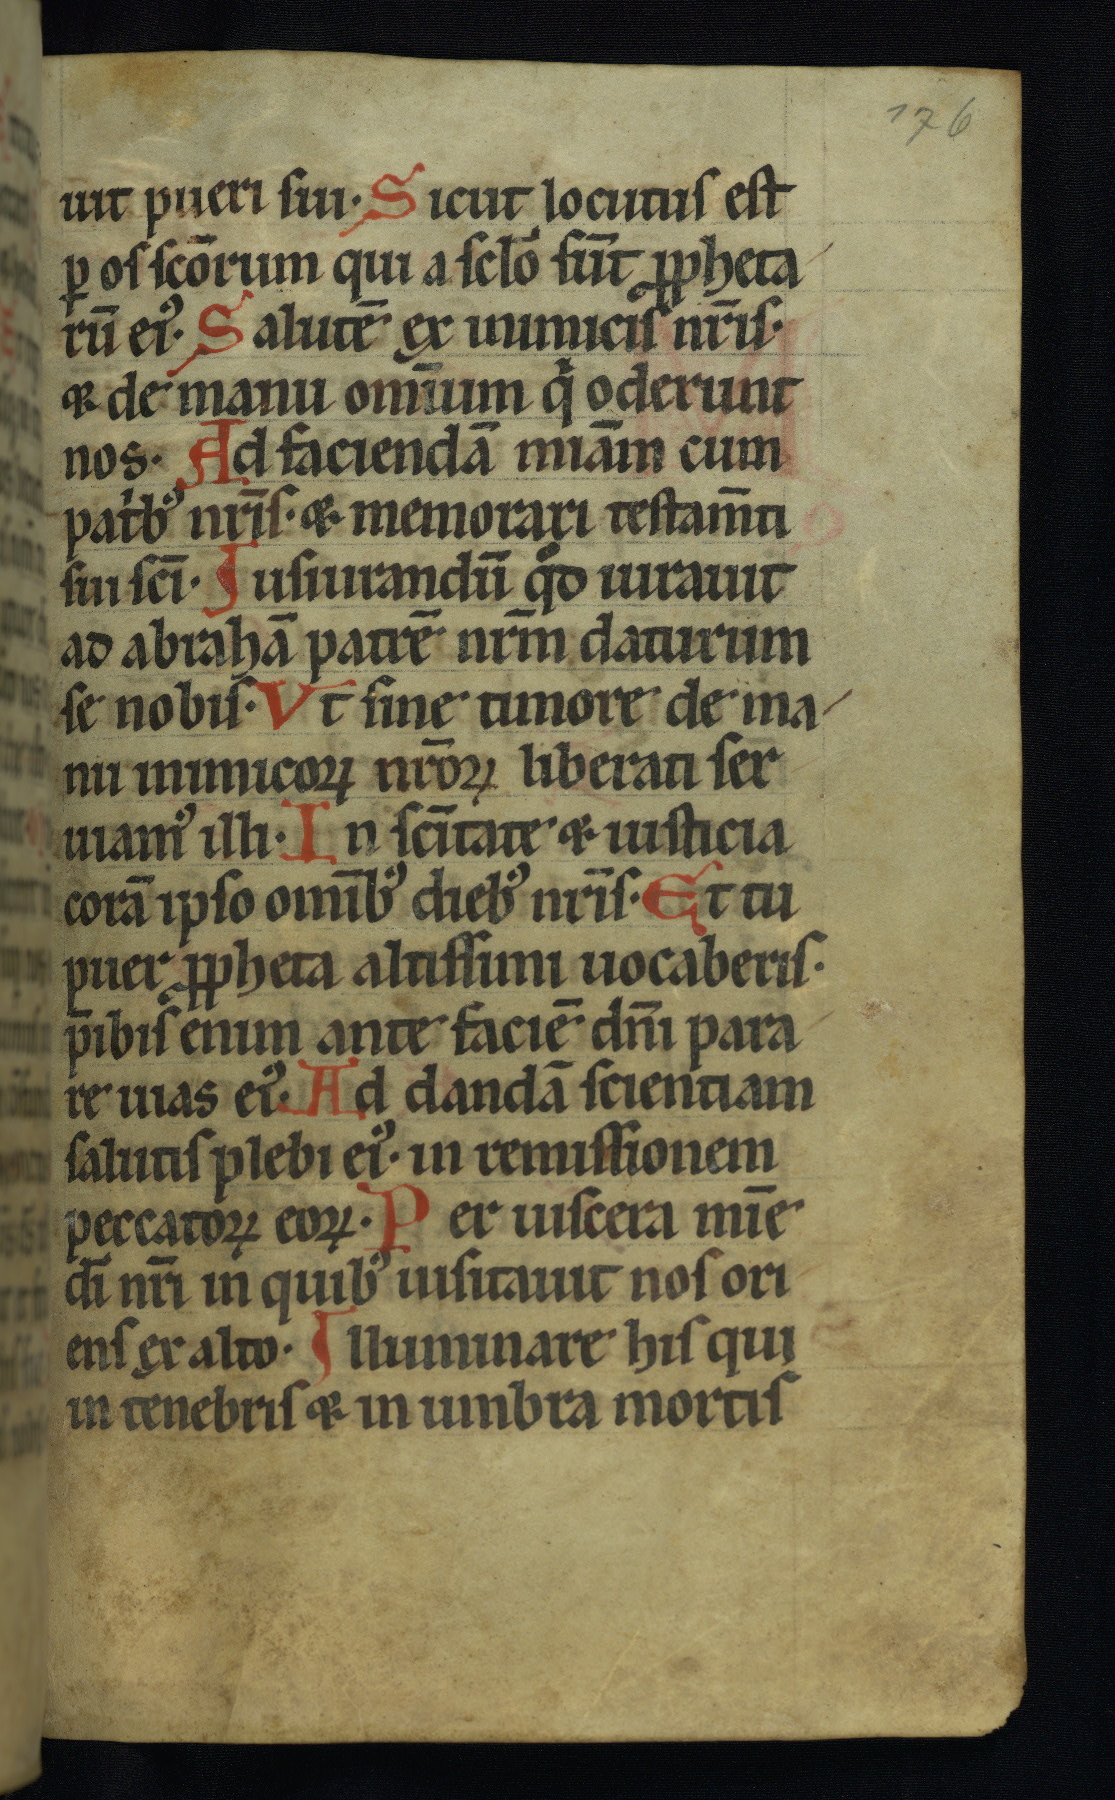 176
uit pueri sui. Sicut locutus est
ꝑ os sc̄orum qui a scl̄o sūt ꝓpheta
rū eiꝰ. Salutē ex inimicis nr̄is.
& de manu omīum qͥ oderunt
nos. Ad faciendā miām cum
patͥbꝰ nr̄is. & memorari testam̄ti
sui sc̄i. Iusiurandū qͦd iurauit
ad abrahā patrē nr̄m daturum
se nobis. Vt sine timore de ma
nu inimicoꝝ nr̄oꝝ liberati ser
uiamꝰ illi. In sc̄itate & iusticia
corā ipso omībꝰ diebꝰ nr̄is. Et tu
puer ꝓpheta altissimi uocaberis.
p̄ibis enim ante faciē dn̄i para
re uias eiꝰ. Ad dandā scientiam
salutis plebi eiꝰ. in remissionem
peccatoꝝ eoꝝ. Per uiscera mīe
dī nr̄i in quibꝰ uisitauit nos ori
ens ex alto. Illuminare his qui
in tenebris & in umbra mortis